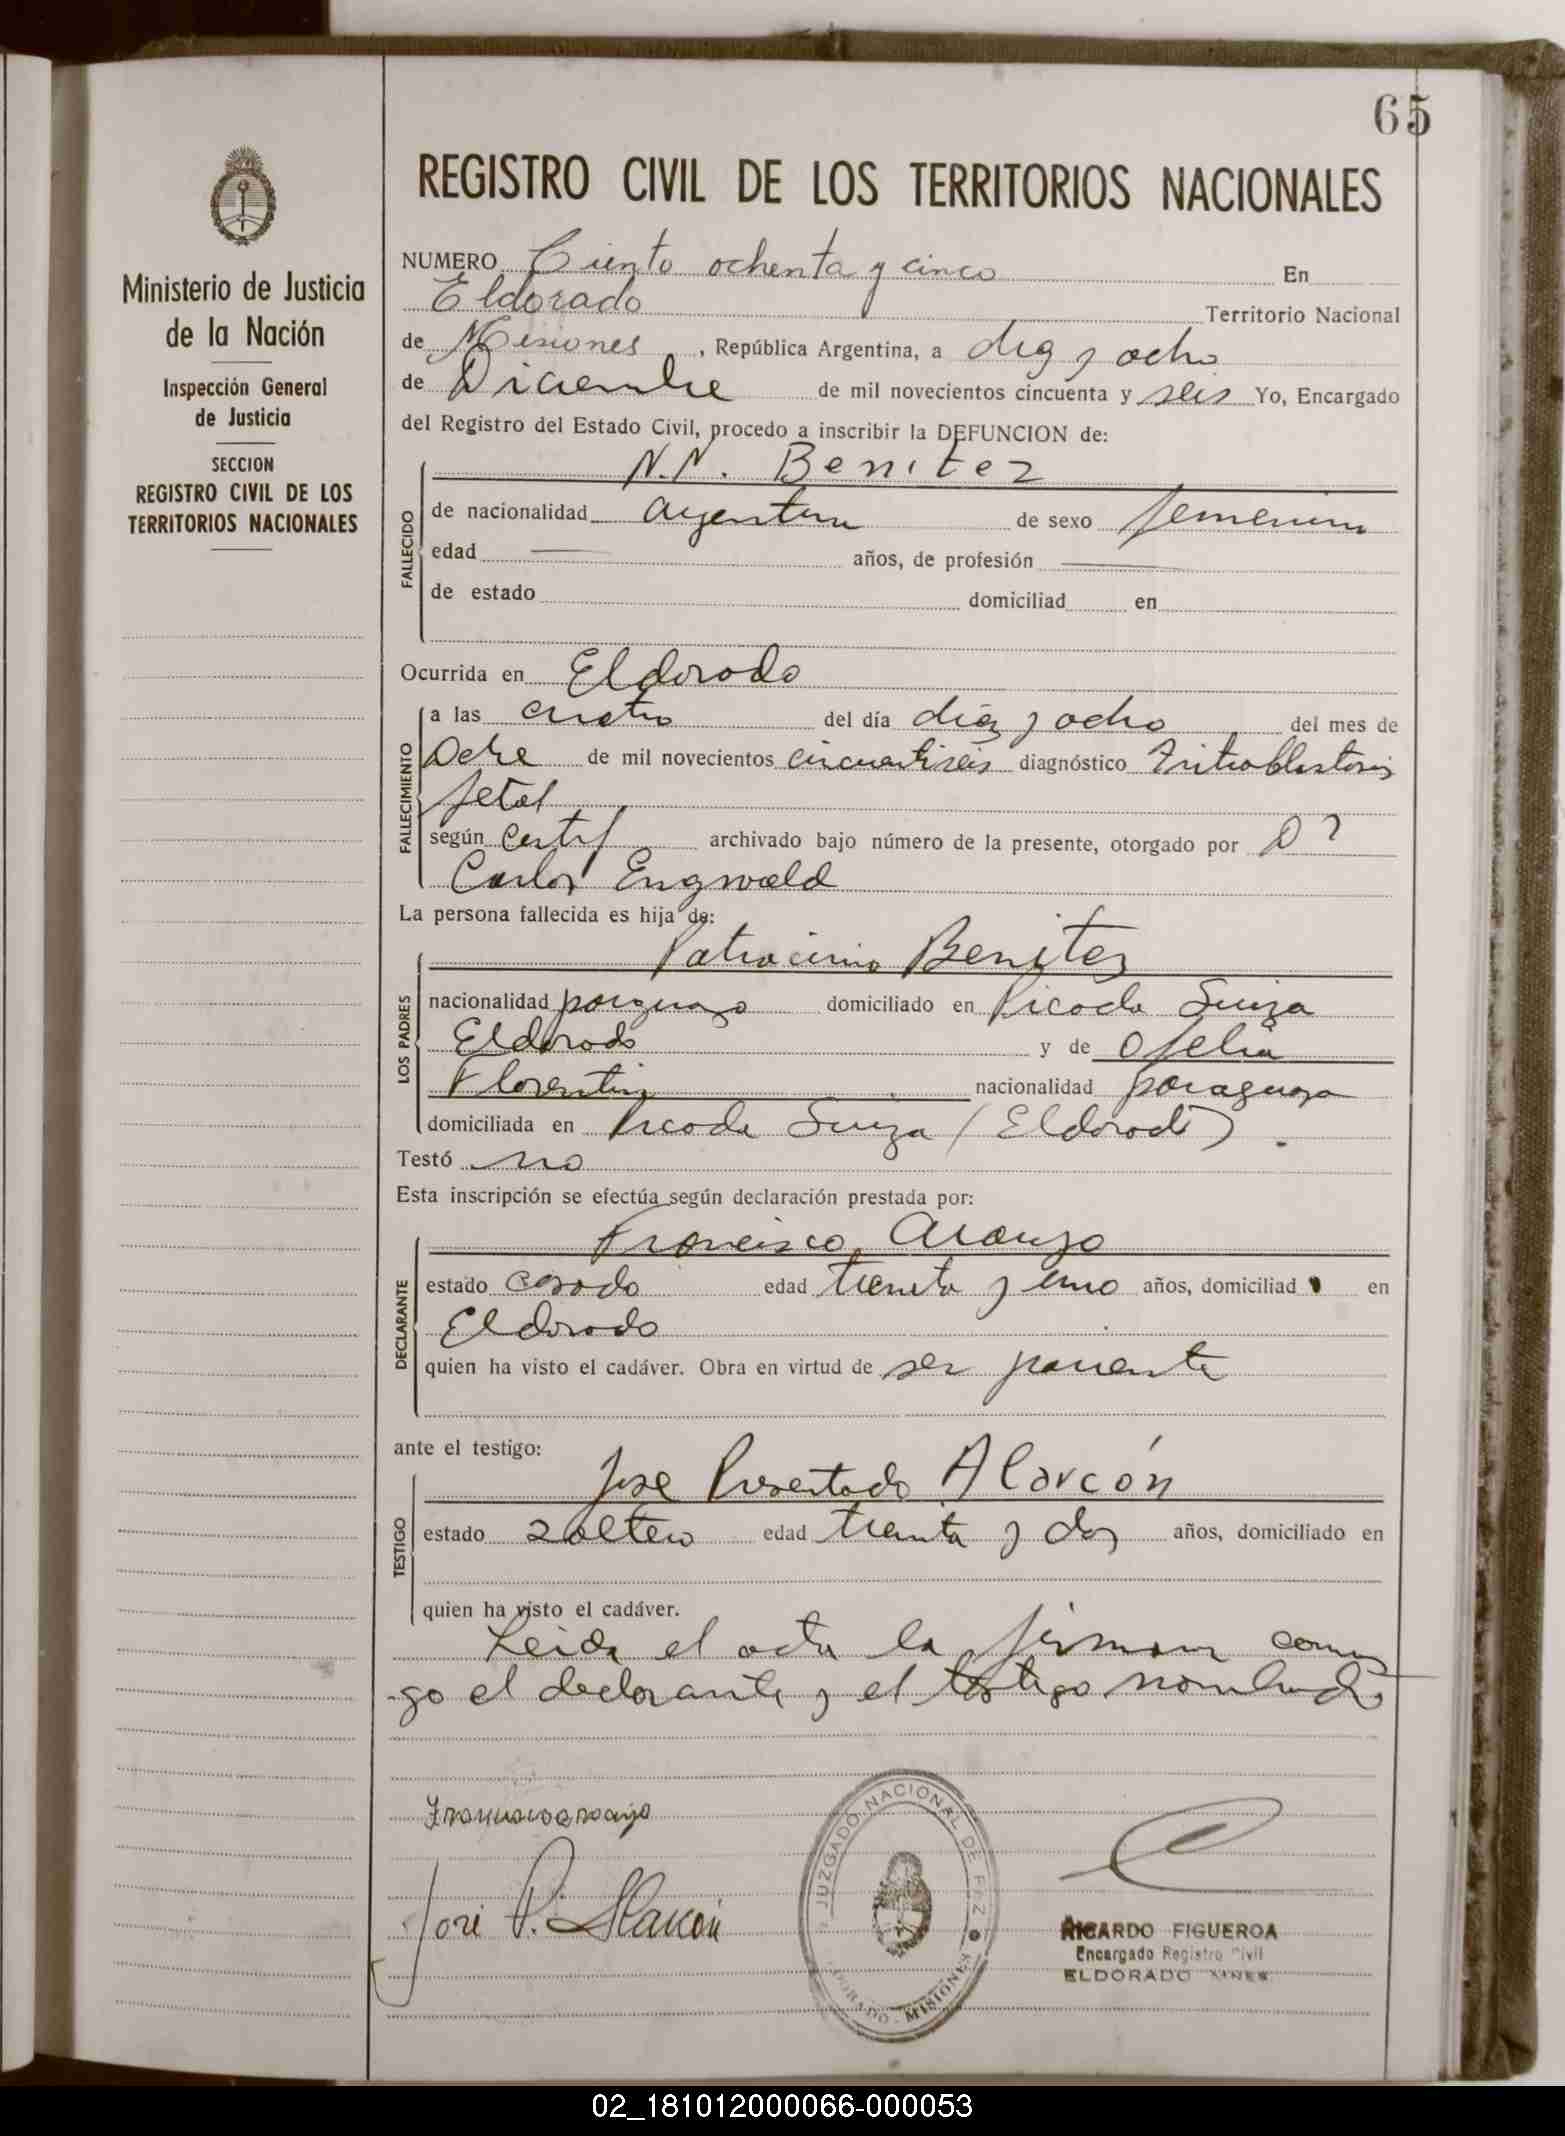 65
REGISTRO CIVIL DE LOS TERRITORIOS NACIONALES
Ministerio de Justicia
de la Nación
Inspección General
de Justicia
SECCION
REGISTRO CIVIL DE LOS
TERRITORIOS NACIONALES
NUMERO Ciento ochenta y cinco En
Eldorado Territorio Nacional
de Misiones, República Argentina, a diez y ocho
de Diciembre de mil novecientos cincuenta y seis Yo, Encargado
del Registro del Estado Civil, procedo a inscribir la DEFUNCION de:
N.N. Benitez
FALLECIDO
de nacionalidad argentina de sexo femenino
edad — años, de profesión —
de estado domiciliad en
Ocurrida en Eldorado
FALLECIMIENTO
a las cuatro del día diez y ocho del mes de
Dcbre de mil novecientos cincuentiseis diagnóstico Eritroblastosis
fetal
según certif archivado bajo número de la presente, otorgado por Dr
Carlos Engwald
La persona fallecida es hija de:
LOS PADRES
Patrocinio Benitez
nacionalidad paraguayo domiciliado en Picada Suiza
Eldorado y de Ofelia
Florentin nacionalidad paraguaya
domiciliada en Picada Suiza (Eldorado).
Testó no
Esta inscripción se efectúa según declaración prestada por:
DECLARANTE
Francisco Araujo
estado casado edad treinta y uno años, domiciliad o en
Eldorado
quien ha visto el cadáver. Obra en virtud de ser pariente
ante el testigo:
TESTIGO
Jose Presentado Alarcón
estado soltero edad treinta y dos años, domiciliado en
quien ha visto el cadáver.
Leida el acta la firman conmi
go el declarante y el testigo nombrado
Francisco araujo
José P. Alarcón
JUZGADO NACIONAL DE PAZ
ELDORADO - MISIONES
RICARDO FIGUEROA
Encargado Registro Civil
ELDORADO MNES.
02_181012000066-000053